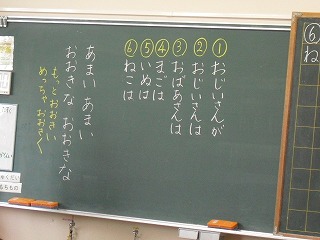 ①おじいさんが
②おじいさんは
③おばあさんは
④まごは
⑤いぬは
⑥ねこは
あまい あまい
おおきな おおきな
もっとおおきい
めっちゃ おおきく
⑥ね